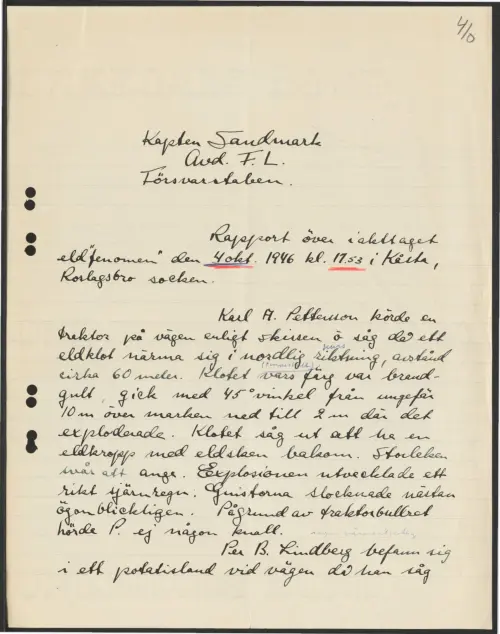 4/0
Kapten Sandmark
Avd. F. L.
Försvarstaben.
Rapport över iakttaget
eld"fenomen" den 4 okt. 1946 kl. 17.53 i Kåsta,
Roslagsbro socken.
Karl A. Pettersson körde en
traktor på vägen enligt skissen o såg då ett
eldklot närma sig i nordlig riktning, avstånd
cirka 60 meter. Klotet vars färg var brand-
gult, gick med 45° vinkel från ungefär
10 m över marken ned till 2 m där det
exploderade. Klotet såg ut att ha en
eldkropp med eldsken bakom. Storleken
svår att ange. Explosionen utvecklade ett
rikt stjärnregn. Gnistorna slocknade nästan
ögonblickligen. Pågrund av traktorbullret
hörde P. ej någon knall.
Per B. Lindberg befann sig
i ett potatisland vid vägen då han såg